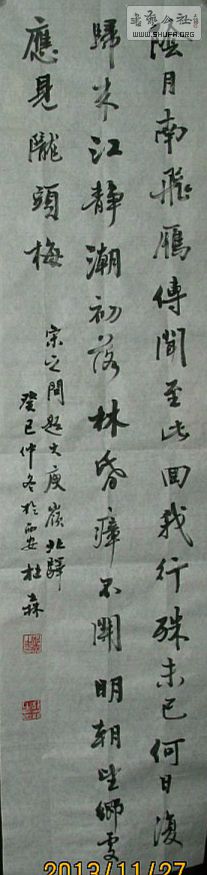 書藝公社
WWW.SHUFA.ORG
陰月南飛鴈傳聞至此回我行殊未已何日復
歸来江靜潮初落林昏瘴不開明朝望鄉處
應見隴頭梅
宋之問題大庾嶺北歸
癸巳仲冬於西安杜森
2013/11/27